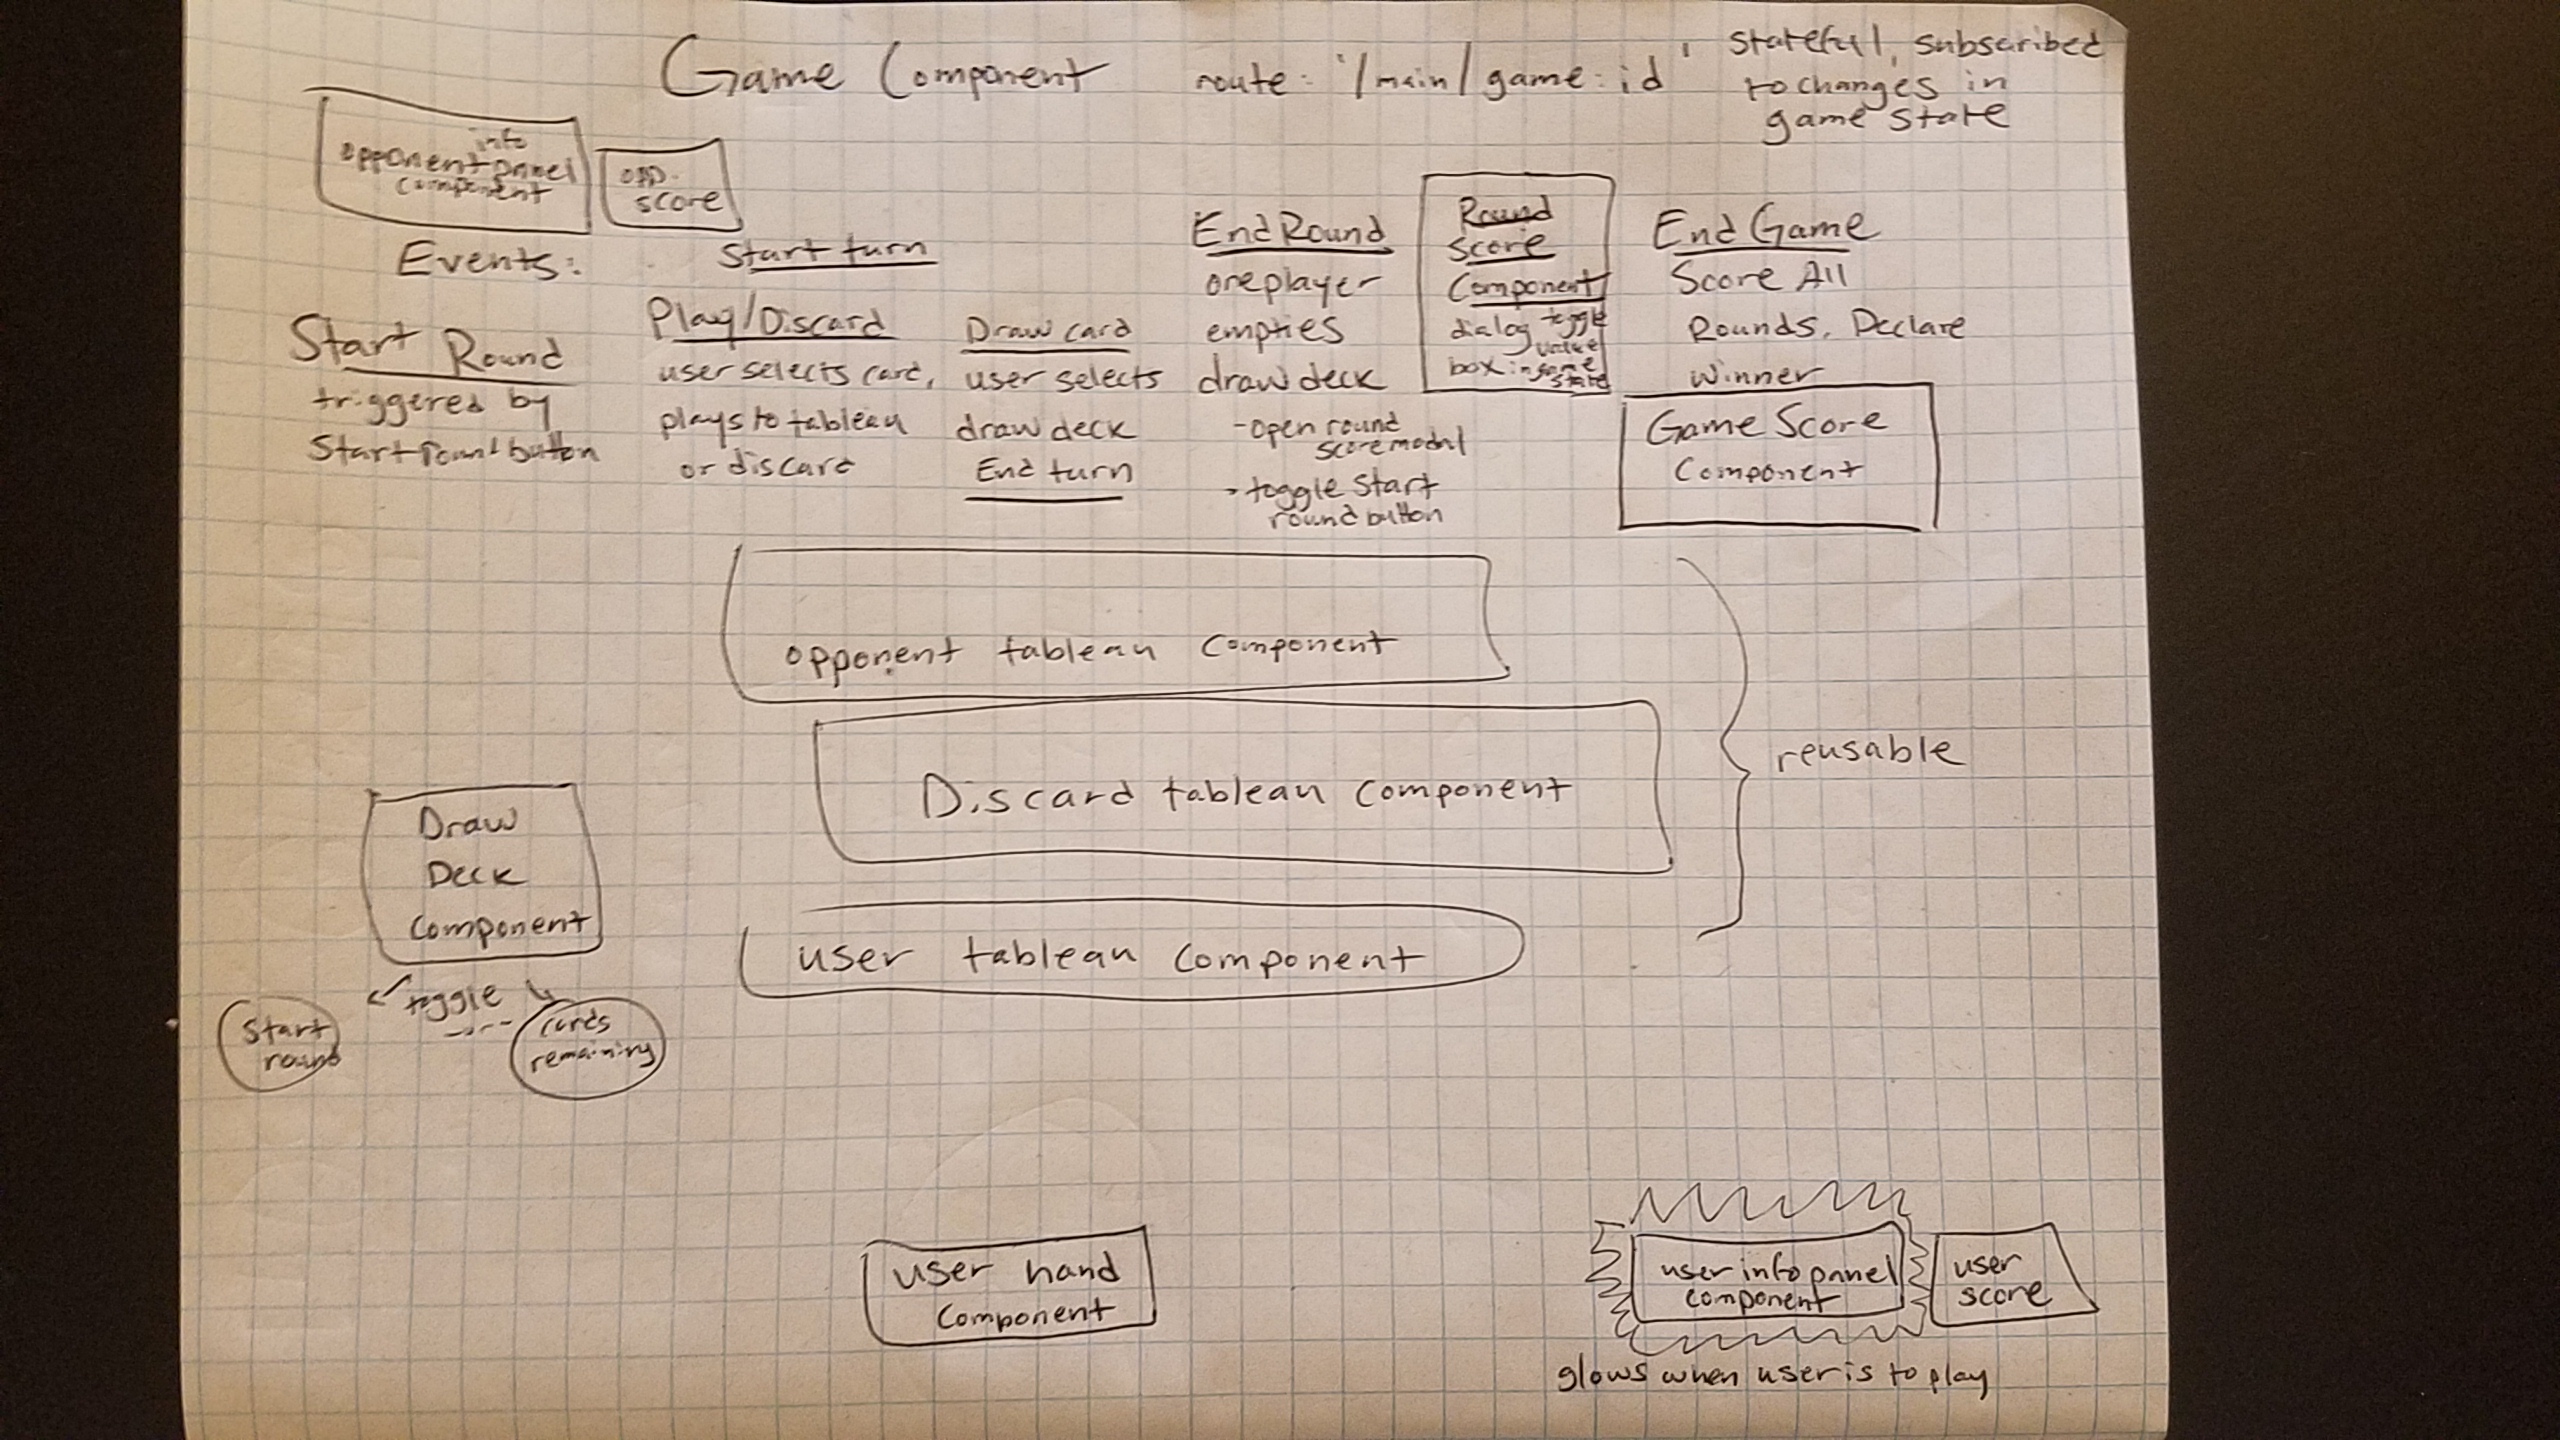 Game Component
route: '/main/game:id'
, stateful, subscribed
to changes in
game state
info
opponent panel
component
opp.
score
Events:
Start Round
triggered by
Start round button
Start turn
Play/Discard
user selects card,
plays to tableau
or discard
Draw card
user selects
draw deck
End turn
End Round
one player
empties
draw deck
- open round
score modal
- toggle start
round button
Round
Score
Component
dialog toggle
value
box in game
state
End Game
Score All
Rounds, Declare
Winner
Game Score
Component
opponent tableau component
Discard tableau component
user tableau component
reusable
Draw
Deck
Component
toggle
Start
round
cards
remaining
user hand
component
user info panel
component
user
score
glows when user is to play